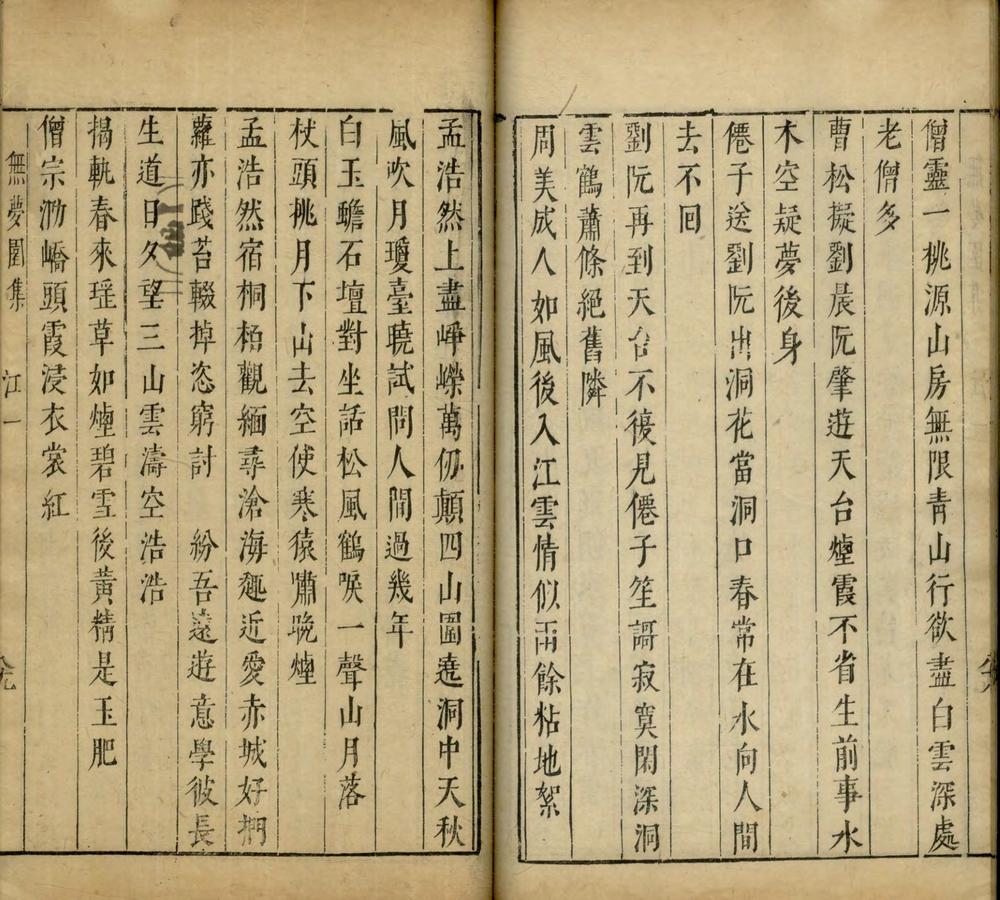 僧靈一桃源山房無限青山行欲盡白雲深處
老僧多
曹松擬劉晨阮肇遊天台煙霞不省生前事水
木空疑夢後身
僊子送劉阮出洞花當洞口春常在水向人間
去不囘
劉阮再到天台不復見僊子笙謌寂寞閑深洞
雲鶴蕭條絕舊隣
周美成人如風後入江雲情似雨餘粘地絮
孟浩然上盡崢嶸萬仞巔四山圍遶洞中天秋
風吹月瓊臺曉試問人間過幾年
白玉蟾石壇對坐話松風鶴唳一聲山月落
杖頭挑月下山去空使寒猿嘯晚煙
孟浩然宿桐栢觀緬尋滄海趣近愛赤城好捫
蘿亦踐苔輟掉恣窮討 紛吾遠遊意學彼長
生道日夕望三山雲濤空浩浩
揭軌春來瑶草如煙碧雪後黃精是玉肥
僧宗泐嶠頭霞浸衣裳紅
無夢園集 江一